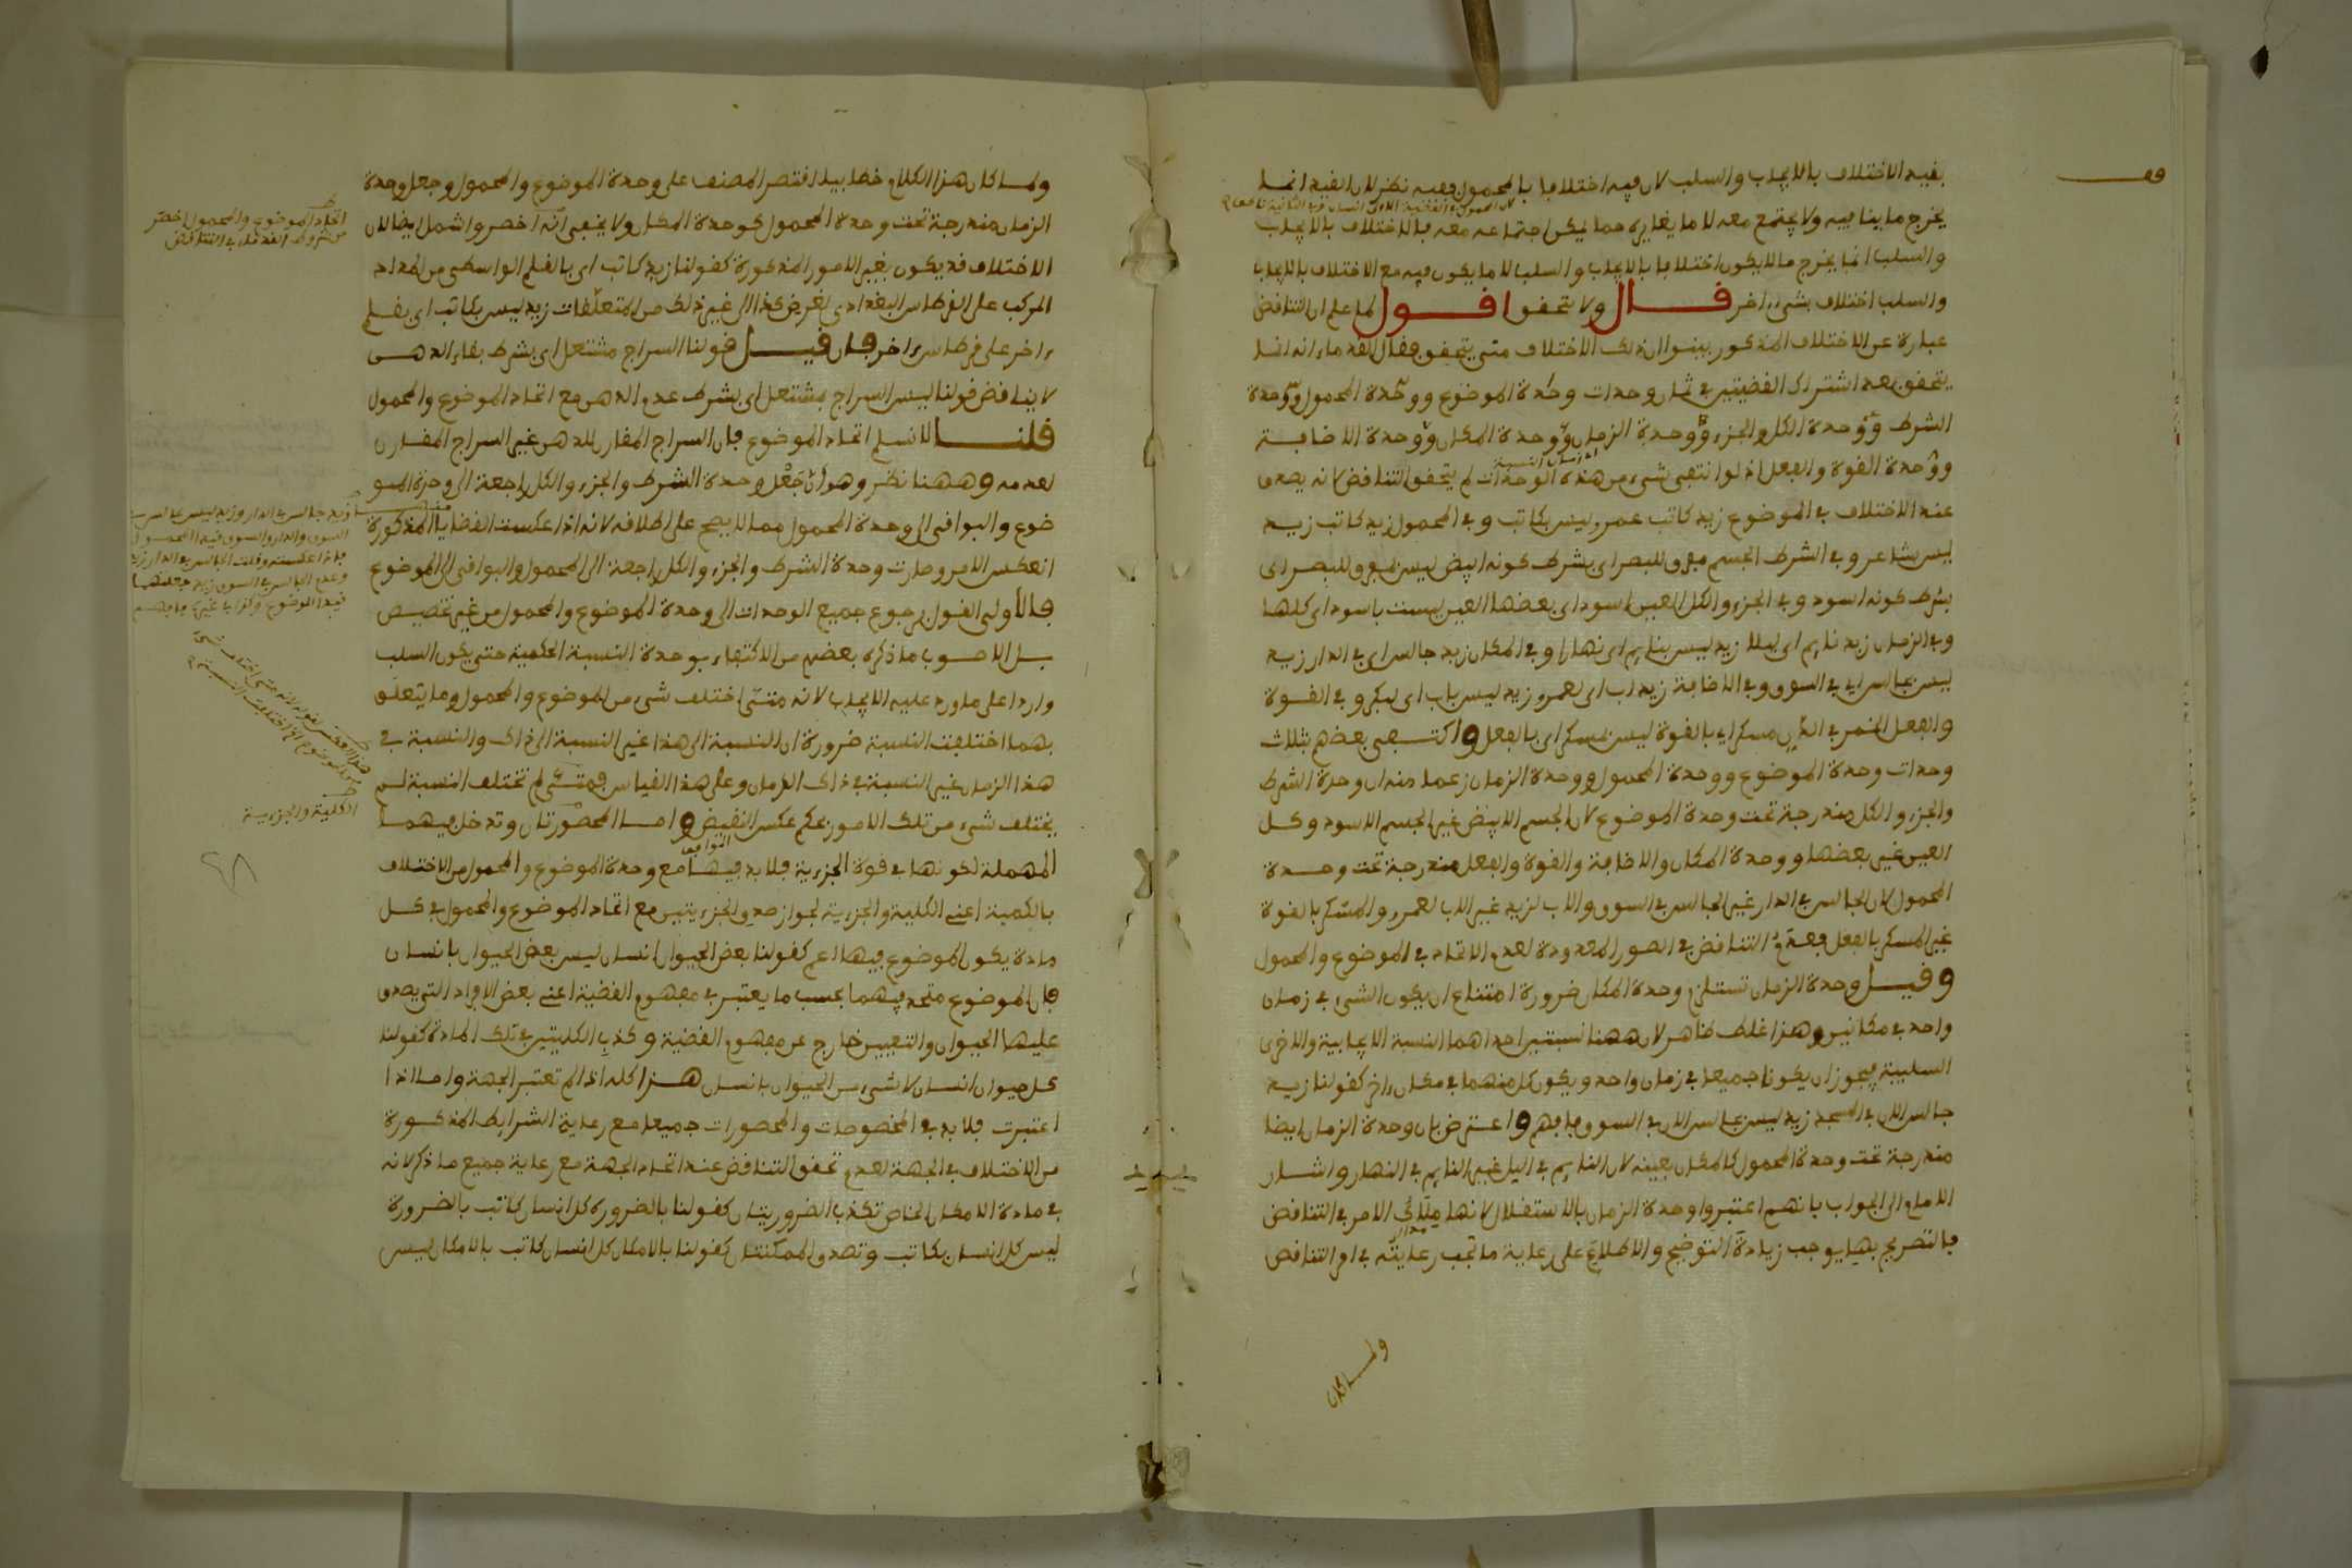 بقيد الاختلاف بالايجاب والسلب لان فيه اختلافا بالمحمول وفيه نظر لان القيد انما
يخرج ما ينافيه ولا يجتمع معه لا ما يغايره مما يمكن اجتماعه معه فالاختلاف بالايجاب
والسلب انما يخرج ما لا يكون اختلافا بالايجاب والسلب لا ما يكون فيه مع الاختلاف بالايجاب
والسلب اختلاف بشيء اخر قال ولا تحقق اقول لما علم ان التناقض
عبارة عن الاختلاف المذكور بينوا ان ذلك الاختلاف متى يتحقق فقال القدماء انه انما
يتحقق بعد اشتراك القضيتين في ثمان وحدات وحدة الموضوع ووحدة المحمول ووحدة
الشرط ووحدة الكل والجزء ووحدة الزمان ووحدة المكان ووحدة الاضافة
ووحدة القوة والفعل اذ لو انتفى شيء من هذه الوحدات لم يتحقق التناقض لانه يصدق
عند الاختلاف في الموضوع زيد كاتب عمرو ليس بكاتب وفي المحمول زيد كاتب زيد
ليس بشاعر وفي الشرط الجسم مفرق للبصر اي بشرط كونه ابيض ليس بمفرق للبصر اي
بشرط كونه اسود وفي الجزء والكل العين اسود اي بعضها العين ليست باسود اي كلها
وفي الزمان زيد نايم اي ليلا زيد ليس بنايم اي نهارا وفي المكان زيد جالس اي في الدار زيد
ليس بجالس اي في السوق وفي الاضافة زيد اب اي لعمرو زيد ليس باب اي لبكر وفي القوة
والفعل الخمر في الدن مسكر اي بالقوة ليس بمسكر اي بالفعل واكتفى بعضهم بثلاث
وحدات وحدة الموضوع ووحدة المحمول ووحدة الزمان زعما منه ان وحدة الشرط
والجزء والكل مندرجة تحت وحدة الموضوع لان الجسم الابيض غير الجسم الاسود وكل
العين غير بعضها ووحدة المكان والاضافة والقوة والفعل مندرجة تحت وحدة
المحمول لان الجالس في الدار غير الجالس في السوق والاب لزيد غير الاب لعمرو والمسكر بالقوة
غير المسكر بالفعل فعدم التناقض في الصور المعدودة لعدم الاتحاد في الموضوع والمحمول
وقيل وحدة الزمان تستلزم وحدة المكان ضرورة امتناع ان يكون الشيء في زمان
واحد في مكانين وهذا غلط ظاهر لان ههنا نسبتين احداهما النسبة الايجابية والاخرى
السلبية فيجوز ان يكونا جميعا في زمان واحد ويكون كل منهما في مكان اخر كقولنا زيد
جالس الان في المسجد زيد ليس بجالس الان في السوق فافهم واعترض بان وحدة الزمان ايضا
مندرجة تحت وحدة المحمول كالمكان بعينه لان النايم في اليل غير النايم في النهار واشار
الامام الى الجواب بانهم اعتبروا وحدة الزمان بالاستقلال لانها ملاك الامر في التناقض
فالتصريح بها يوجب زيادة التوضيح والاطلاع على رعاية ما تجب رعايته في امر التناقض
ولما كان
ولما كان هذا الكلام خطابيا اقتصر المصنف على وحدة الموضوع والمحمول وجعل وحدة
الزمان مندرجة تحت وحدة المحمول كوحدة المكان ولا يخفى انه اخصر واشمل ايضا لان
الاختلاف قد يكون بغير الامور المذكورة كقولنا زيد كاتب اي بالقلم الواسطي من المداد
المركب على القرطاس البغدادي لغرض كذا الى غير ذلك من المتعلقات زيد ليس بكاتب اي بقلم
اخر على قرطاس اخر فان قيل قولنا السراج مشتعل اي بشرط بقاء الدهن
لا يناقض قولنا ليس السراج بمشتعل اي بشرط عدم الدهن مع اتحاد الموضوع والمحمول
قلنا لا نسلم اتحاد الموضوع فان السراج المقارن للدهن غير السراج المقارن
لعدمه وههنا نظر وهو ان جعل وحدة الشرط والجزء والكل راجعة الى وحدة المو
ضوع والبواقي الى وحدة المحمول مما لا يصح على اطلاقه لانه اذا عكست القضايا المذكورة
انعكس الامر وصارت وحدة الشرط والجزء والكل راجعة الى المحمول والبواقي الى الموضوع
فالاولى القول برجوع جميع الوحدات الى وحدة الموضوع والمحمول من غير تخصيص
بل الاصوب ما ذكره بعضهم من الاكتفاء بوحدة النسبة الحكمية حتى يكون السلب
واردا على ما ورد عليه الايجاب لانه متى اختلف شيء من الموضوع والمحمول وما يتعلق
بهما اختلفت النسبة ضرورة ان النسبة الى هذا غير النسبة الى ذاك والنسبة في
هذا الزمان غير النسبة في ذاك الزمان وعلى هذا القياس فمتى لم تختلف النسبة لم
يختلف شيء من تلك الامور بحكم عكس النقيض واما المحصورتان وتدخل فيهما
المهملة لكونها في قوة الجزءية فلا بد فيهما مع وحدة الموضوع والمحمول من الاختلاف
بالكمية اعني الكلية والجزءية لجواز صدق الجزءيتين مع اتحاد الموضوع والمحمول في كل
مادة يكون الموضوع فيها اعم كقولنا بعض الحيوان انسان ليس بعض الحيوان بانسان
فان الموضوع متحد فيهما بحسب ما يعتبر في مفهوم القضية اعني بعض الافراد التي يصدق
عليها الحيوان والتعيين خارج عن مفهوم القضية وكذب الكليتين في تلك المادة كقولنا
كل حيوان انسان لا شيء من الحيوان بانسان هذا كله اذا لم تعتبر الجهة واما اذا
اعتبرت فلا بد في المخصوصات والمحصورات جميعا مع رعاية الشرايط المذكورة
من الاختلاف في الجهة لعدم تحقق التناقض عند اتحاد الجهة مع رعاية جميع ما ذكر لانه
في مادة الامكان الخاص تكذب الضروريتان كقولنا بالضرورة كل انسان كاتب بالضرورة
ليس كل انسان بكاتب وتصدق الممكنتان كقولنا بالامكان كل انسان كاتب بالامكان ليس
اتحاد الموضوع والمحمول اخصر
الكلية والجزءية